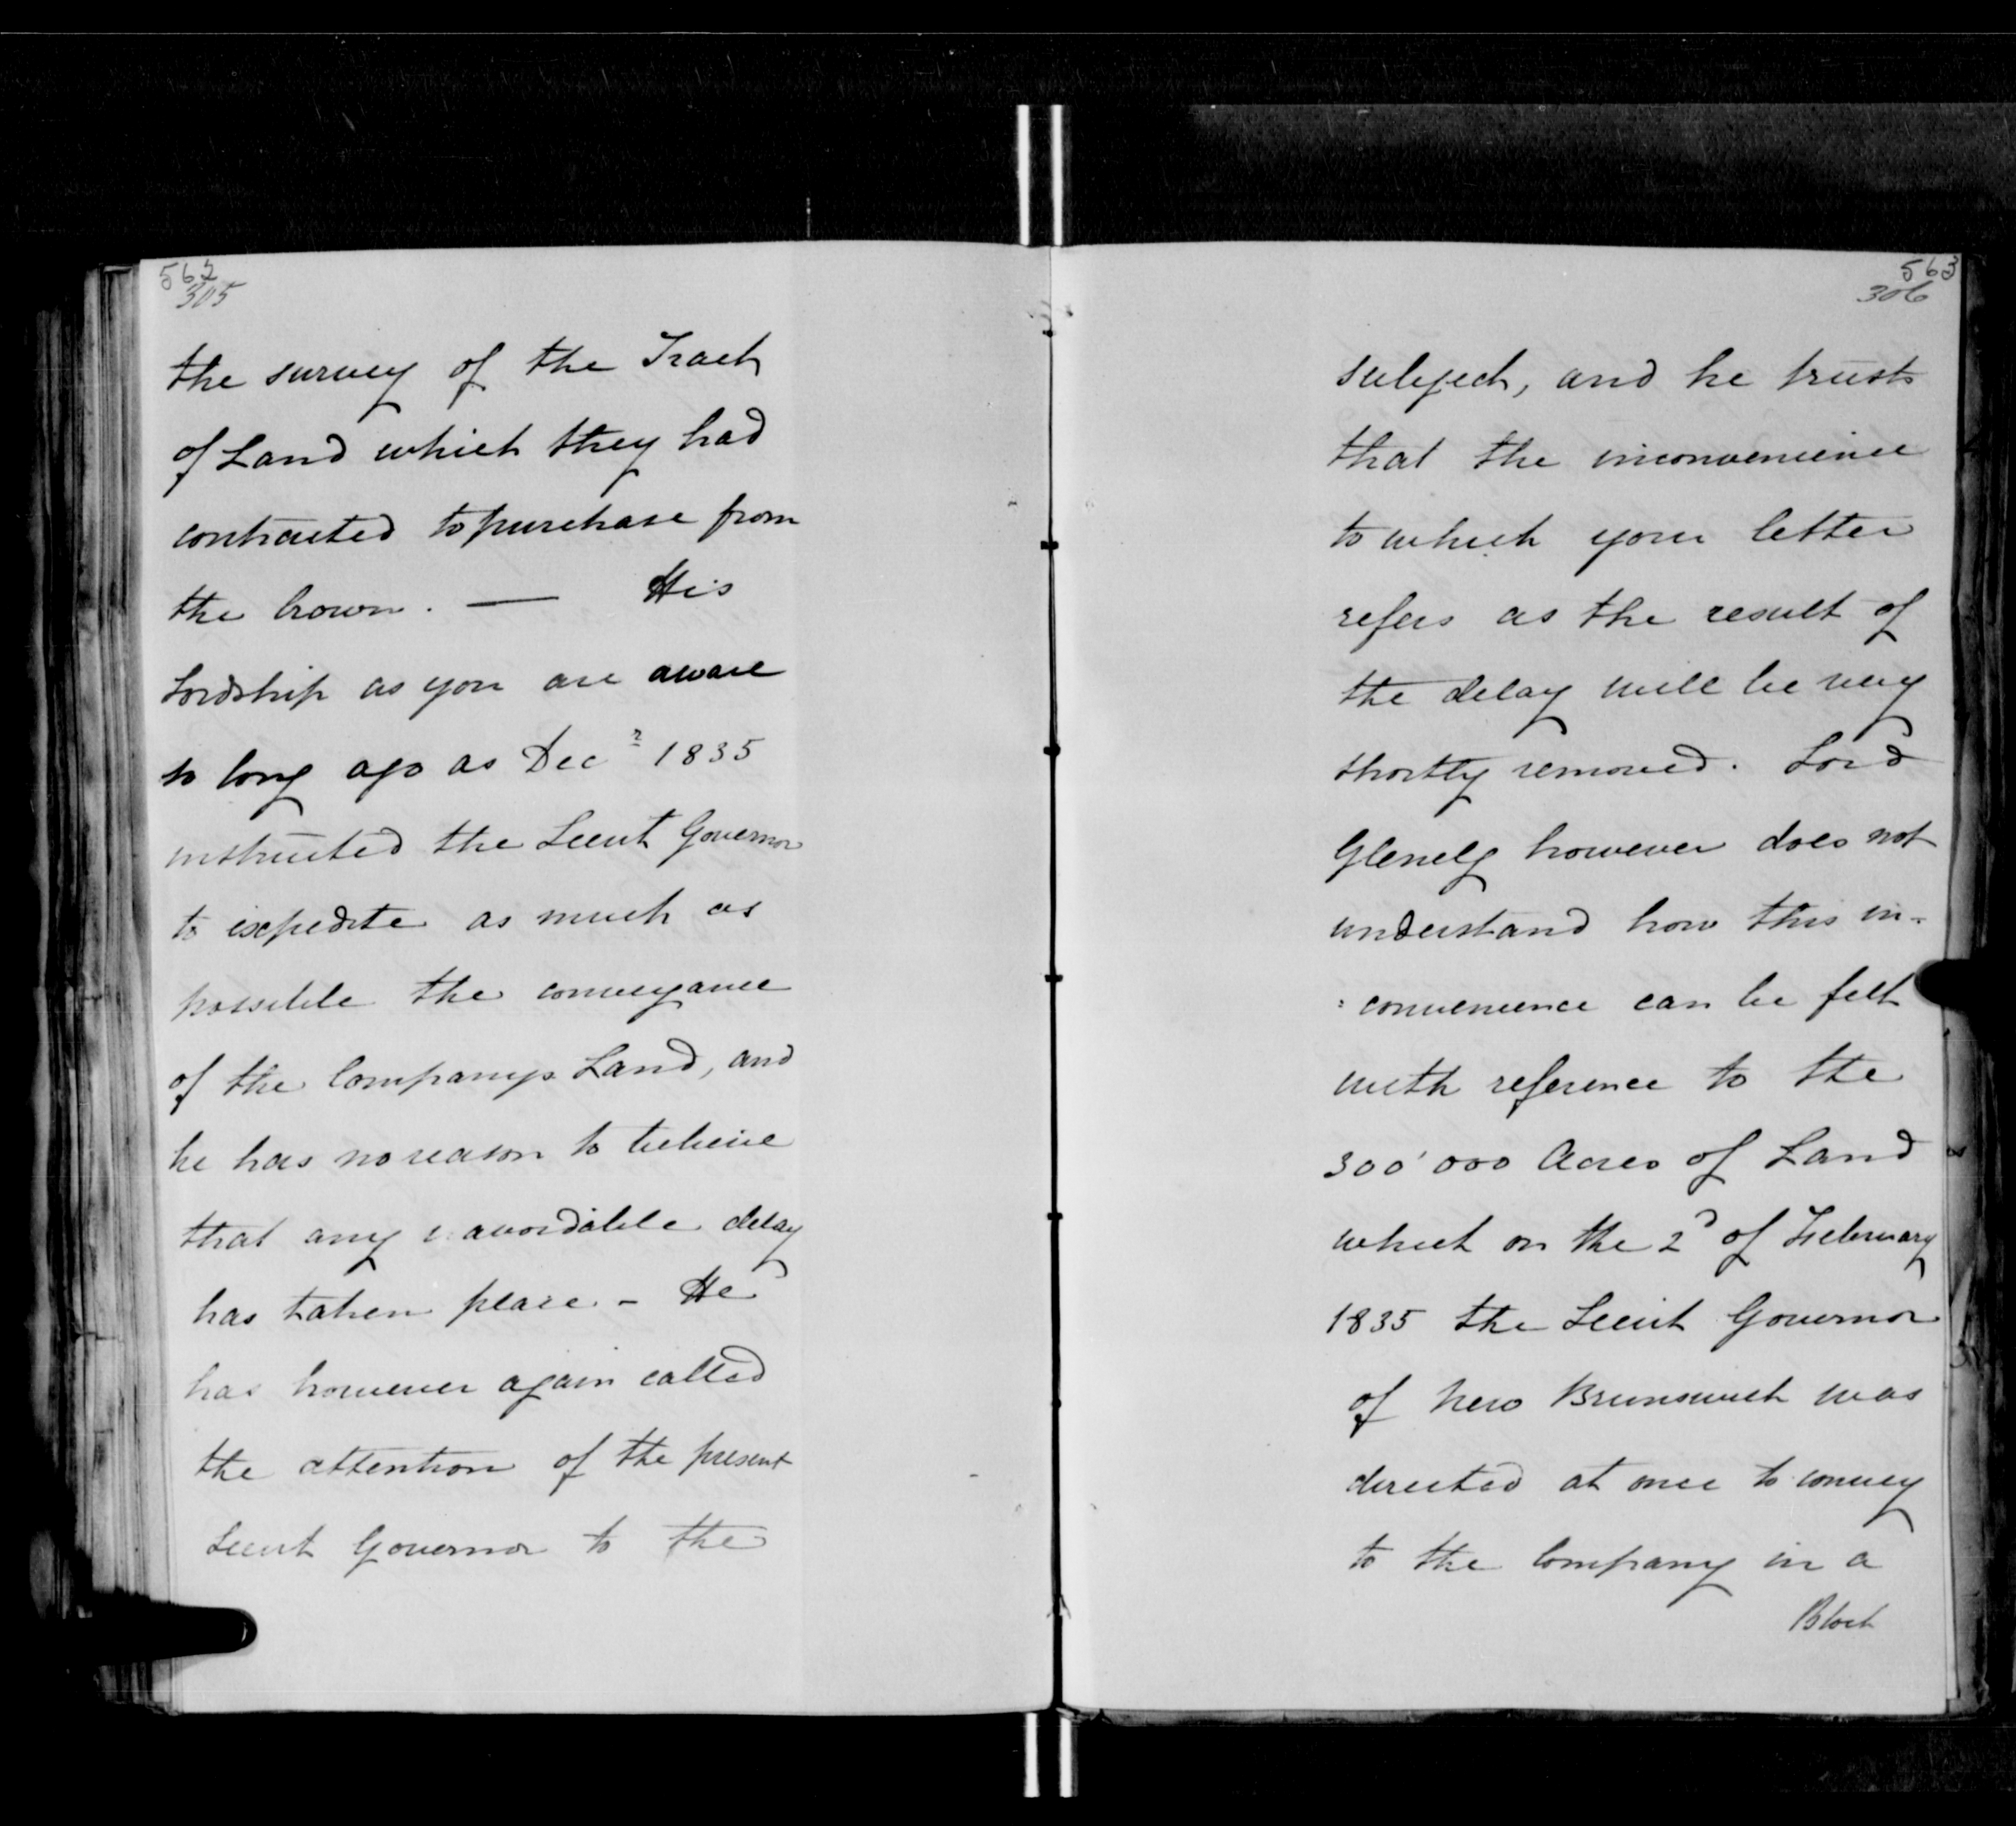 562
305
the survey of the Tract
of Land which they had
contracted to purchase from
the Crown. — His
Lordship as you are aware
so long ago as Decr 1835
instructed the Lieut Governor
to expedite as much as
possible the conveyance
of the Companys Land, and
he has no reason to believe
that any avoidable delay
has taken place - He
has however again called
the attention of the present
Lieut Governor to the
563
306
subject, and he trusts
that the inconvenience
to which your letter
refers as the result of
the delay will be very
shortly removed. Lord
Glenelg however does not
understand how this in-
=convenience can be felt
with reference to the
300'000 Acres of Land
which on the 2d of February
1835 the Lieut Governor
of New Brunswick was
directed at once to convey
to the Company in a
Block